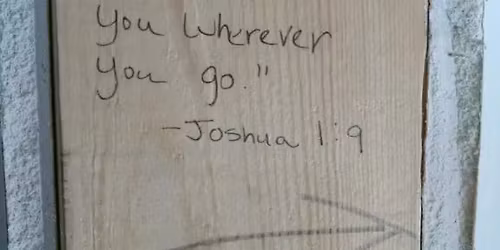 you wherever
you go."
-Joshua 1:9